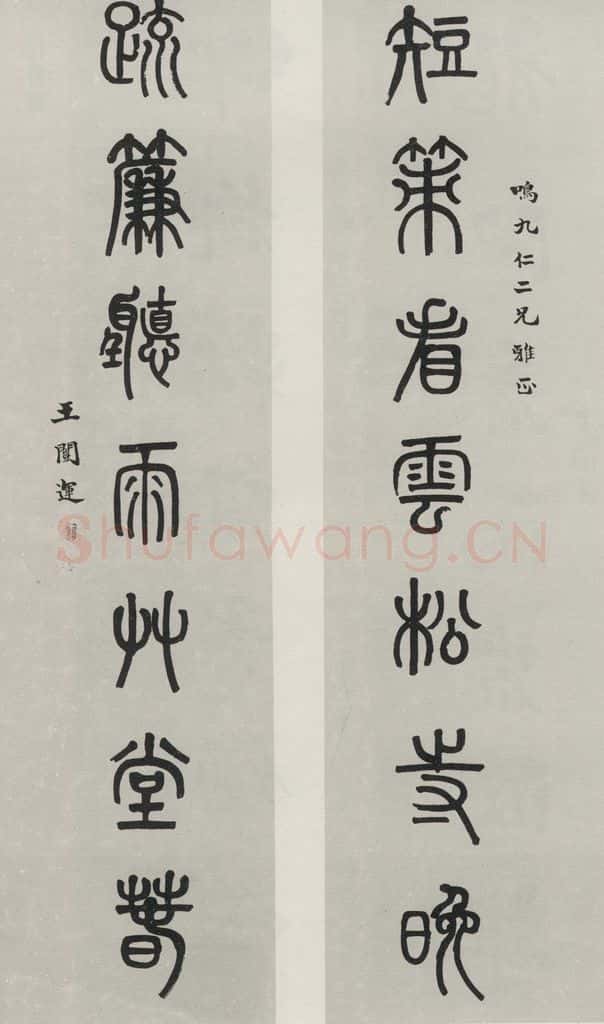 鳴九仁二兄雅正
短策看雲松寺晚
疏簾聽雨艸堂春
王闓運
Shufawang.CN